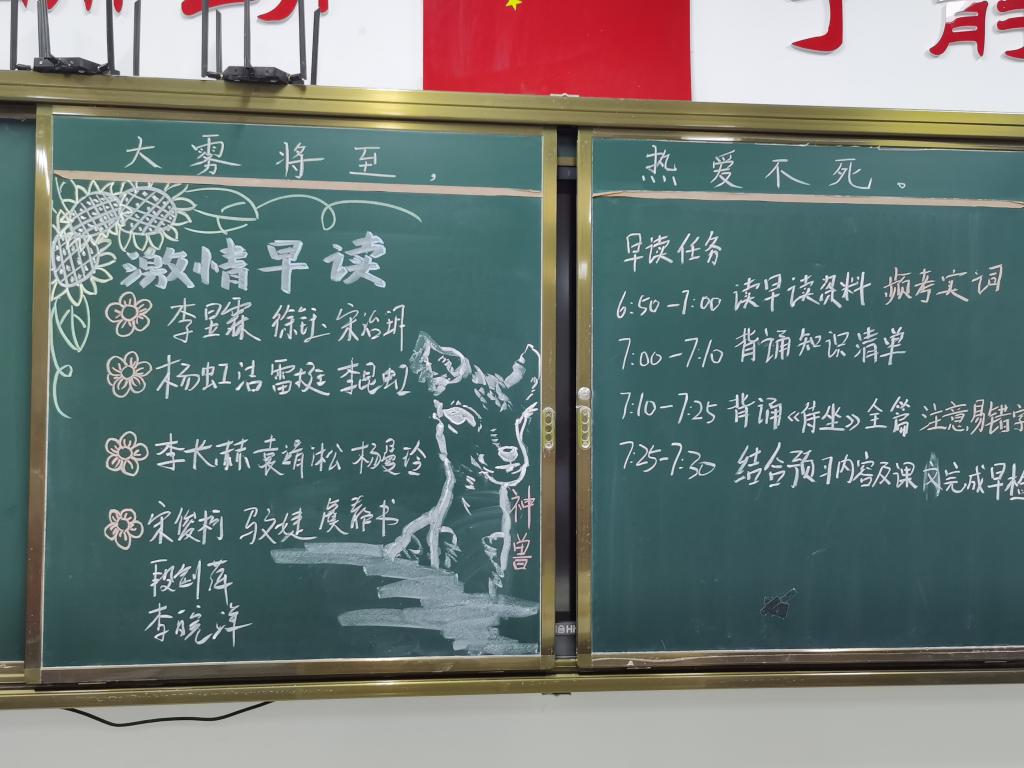 大雾将至，
热爱不死。
激情早读
李星霖 徐钰 宋治玥
杨虹洁 雷挺 李昆虹
李长赫 袁靖淞 杨曼玲
宋俊柯 马文婕 虞静书
段剑萍
李晓洋
神兽
早读任务
6:50-7:00 读早读资料 频考实词
7:00-7:10 背诵知识清单
7:10-7:25 背诵《侍坐》全篇 注意易错字
7:25-7:30 结合预习内容及课文完成早检
静